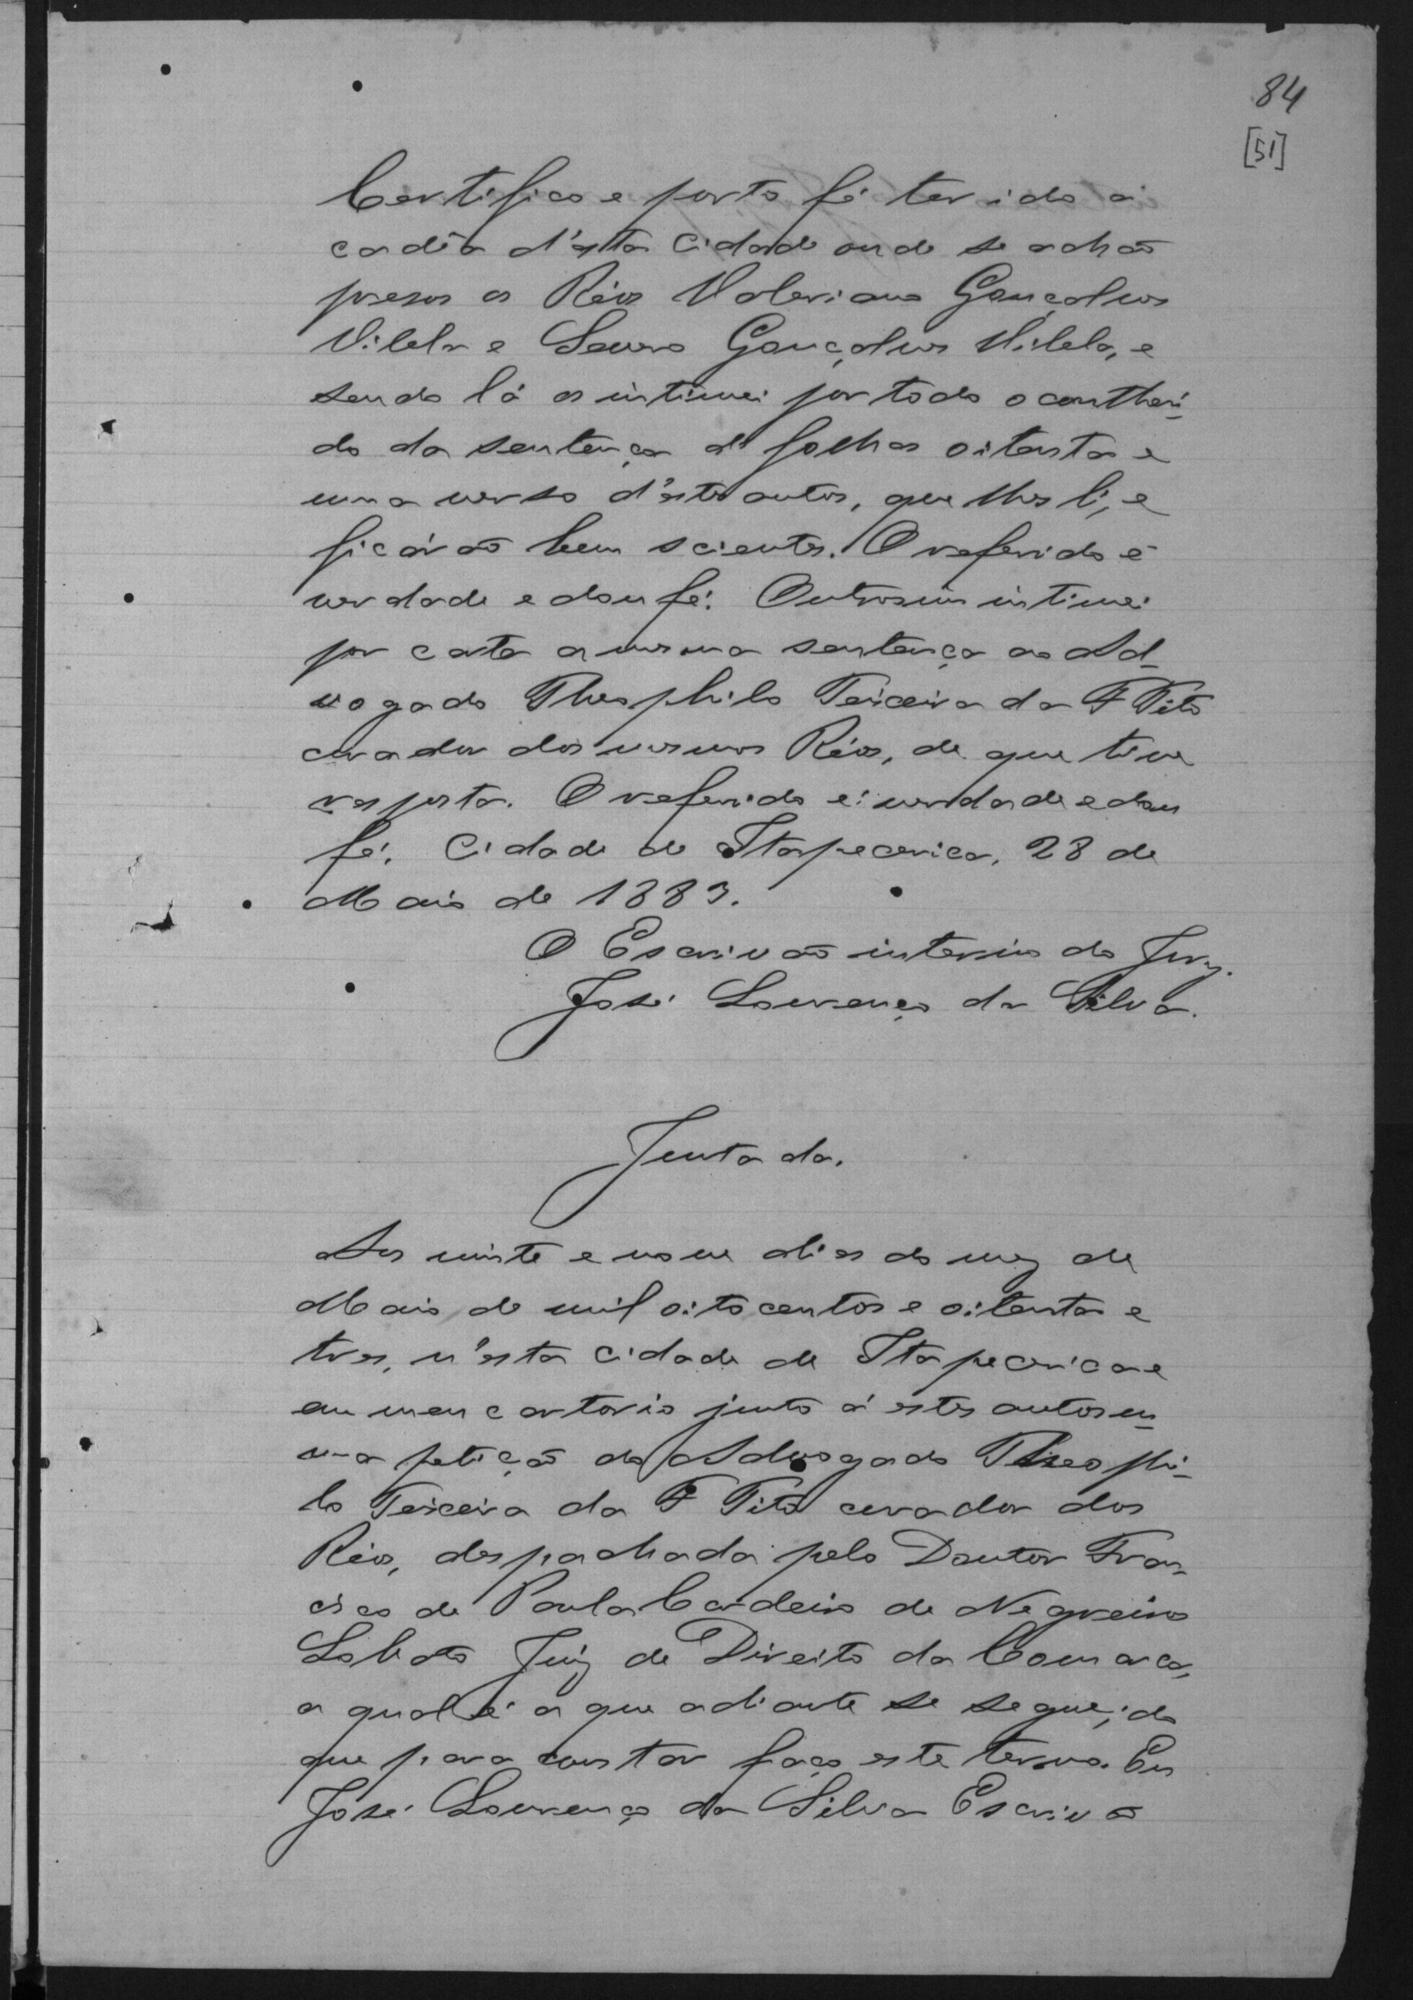 84
[51]
Certifico e porto fé ter ido á
cadêa d'esta Cidade onde se achão
presos os Réos Valeriano Gonçalves
Vilela e Severo Gonçalves Vilela, e
sendo lá os intimei por todo o conthei-
do da sentença de folhas oitenta e
uma verso d'estes autos, que lhes li, e
ficárão bem scientes. O referido é
verdade e dou fé. Outrosim intimei
por carta a mesma sentença ao Ad-
vogado Theophilo Teixeira da F Tito
curador dos mesmos Réos, de que tive
resposta. O referido é verdade e dou
fé. Cidade de Itapecerica, 28 de
Maio de 1883.
O Escrivão interino do Jury.
José Lourenço da Silva.
Juntada.
Aos vinte e nove dias do mez de
Maio de mil oitocentos e oitenta e
tres, n'esta cidade de Itapecerica e
em meu cartorio junto á estes autos u-
ma petição do Advogado Theophi-
lo Teixeira da F Tito curador dos
Réos, despachada pelo Doutor Fran-
cisco de Paula Cordeiro de Negreiros
Lobato Juiz de Direito da Comarca,
a qual é a que adiante se segue; do
que para constar faço este termo. Eu
José Lourenço da Silva Escrivão